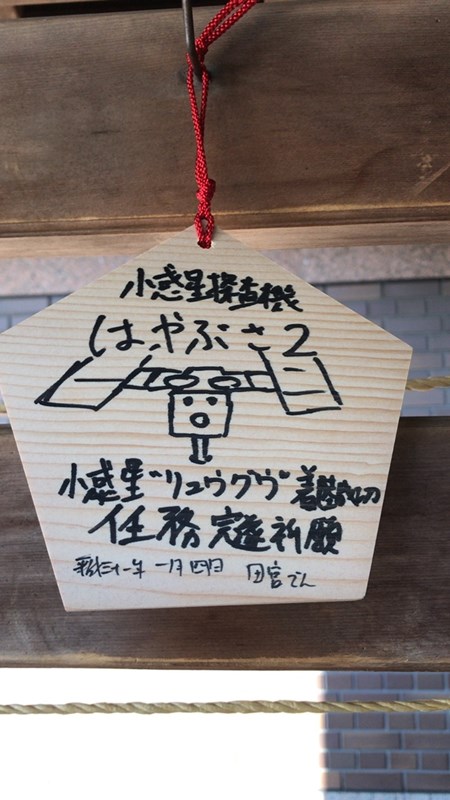 小惑星探査機
はやぶさ2
小惑星"リュウグウ"着陸成功
任務完遂祈願
平成三十一年 一月四日 田宮でん